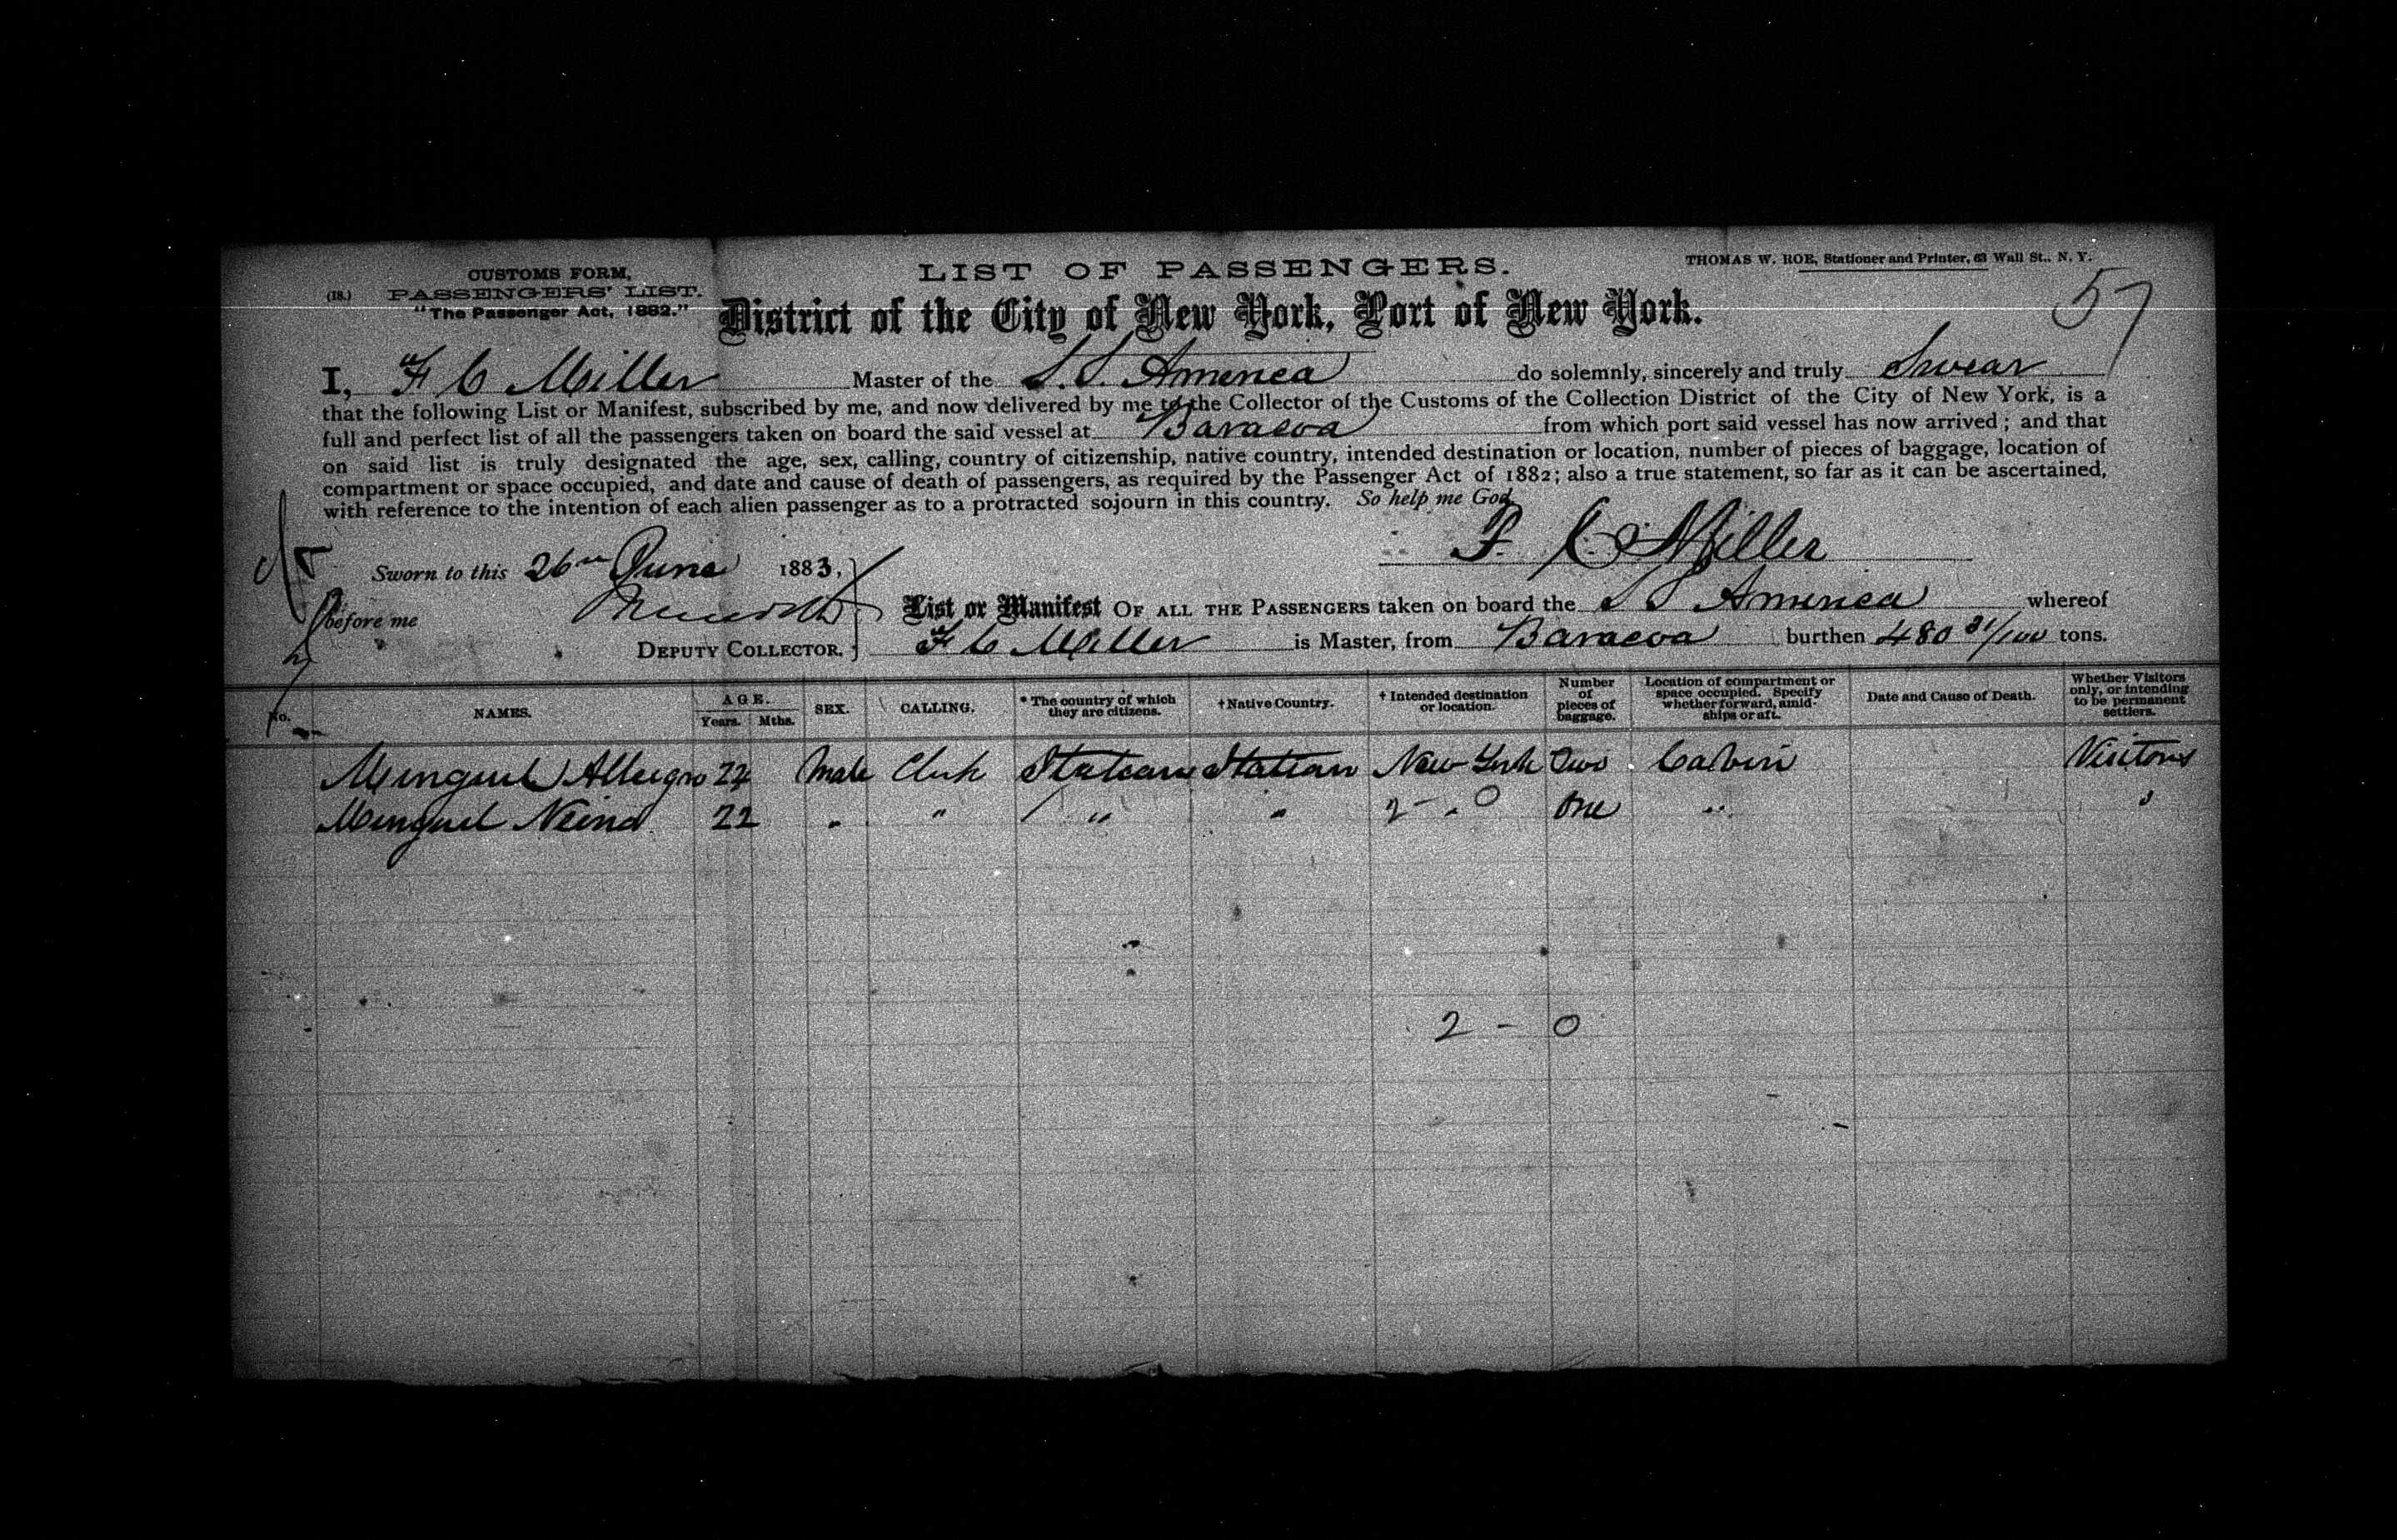 CUSTOMS FORM,
(18.) PASSENGERS' LIST.
"The Passenger Act, 1882."
LIST OF PASSENGERS.
THOMAS W. ROE, Stationer and Printer, 63 Wall St., N. Y.
57
District of the City of New York, Port of New York.
I, F C Miller Master of the S.S. America do solemnly, sincerely and truly Swear
that the following List or Manifest, subscribed by me, and now delivered by me to the Collector of the Customs of the Collection District of the City of New York, is a
full and perfect list of all the passengers taken on board the said vessel at Baracoa from which port said vessel has now arrived; and that
on said list is truly designated the age, sex, calling, country of citizenship, native country, intended destination or location, number of pieces of baggage, location of
compartment or space occupied, and date and cause of death of passengers, as required by the Passenger Act of 1882; also a true statement, so far as it can be ascertained,
with reference to the intention of each alien passenger as to a protracted sojourn in this country. So help me God
F. C. Miller
Sworn to this 26th June 1883,
Before me
DEPUTY COLLECTOR.
List or Manifest OF ALL THE PASSENGERS taken on board the S S America whereof
F C Miller is Master, from Baracoa burthen 480 31/100 tons.
No. NAMES. AGE. Years. Mths. SEX. CALLING. * The country of which they are citizens. † Native Country. † Intended destination or location. Number of pieces of baggage. Location of compartment or space occupied. Specify whether forward, amidships or aft. Date and Cause of Death. Whether Visitors only, or intending to be permanent settlers.
Minguel 22 Male Clerk Italian Italian New York Two Cabin Visitors
Minguel 22 " " " " 2 - 0 One " "
2 - 0